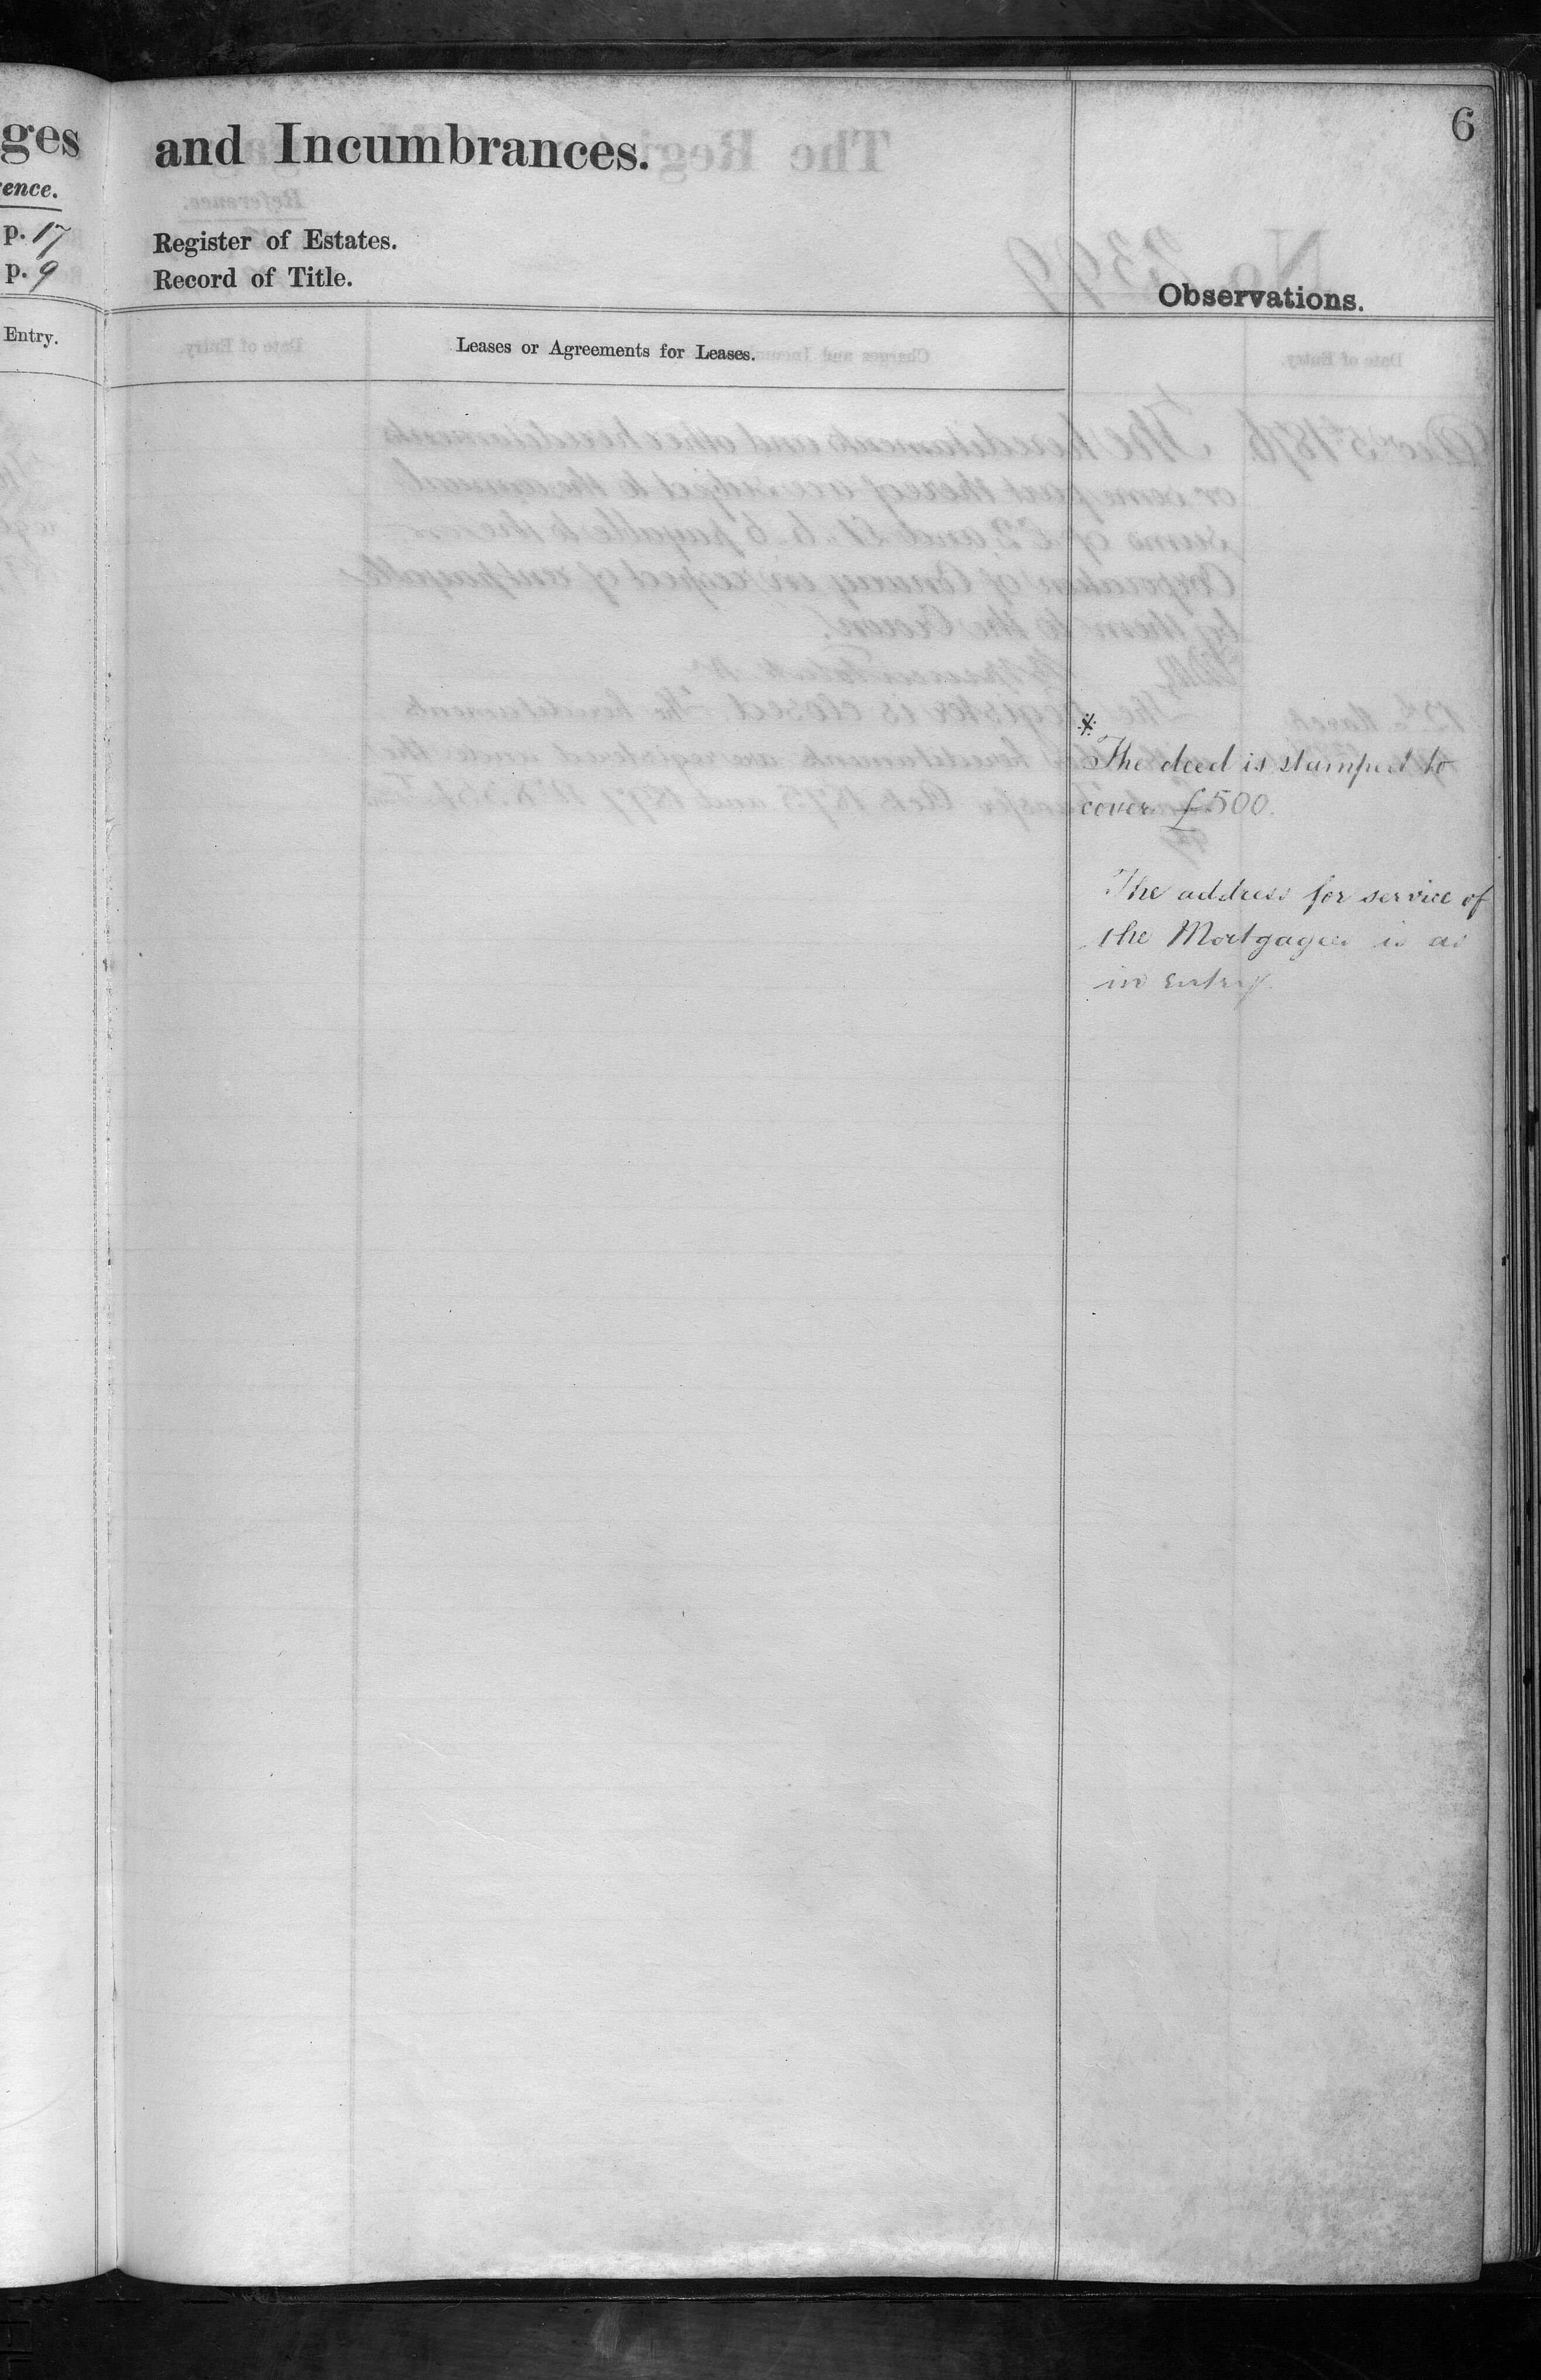 ges
ence.
p. 17
p. 9
Entry.
and Incumbrances.
6
Register of Estates.
Record of Title.
Observations.
Leases or Agreements for Leases.
*
The deed is stamped to
cover £500.
The address for service of
the Mortgagees is as
in entry.